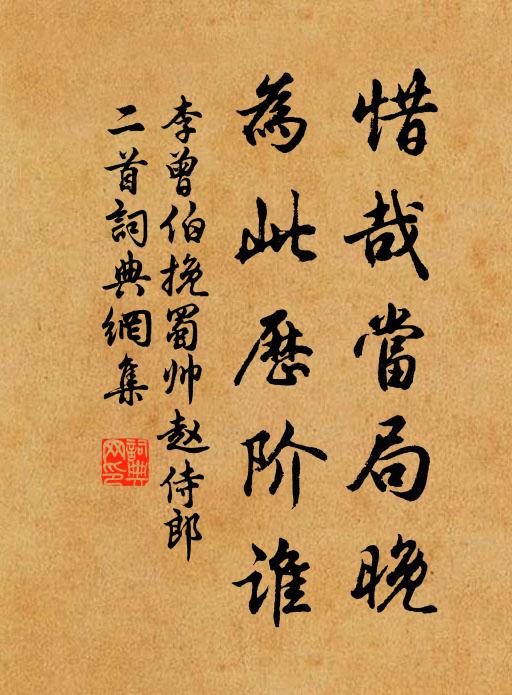 惜哉當局晚
為此歷阶誰
李曾伯挽蜀帅赵侍郎
二首詞典網集
詞典网印